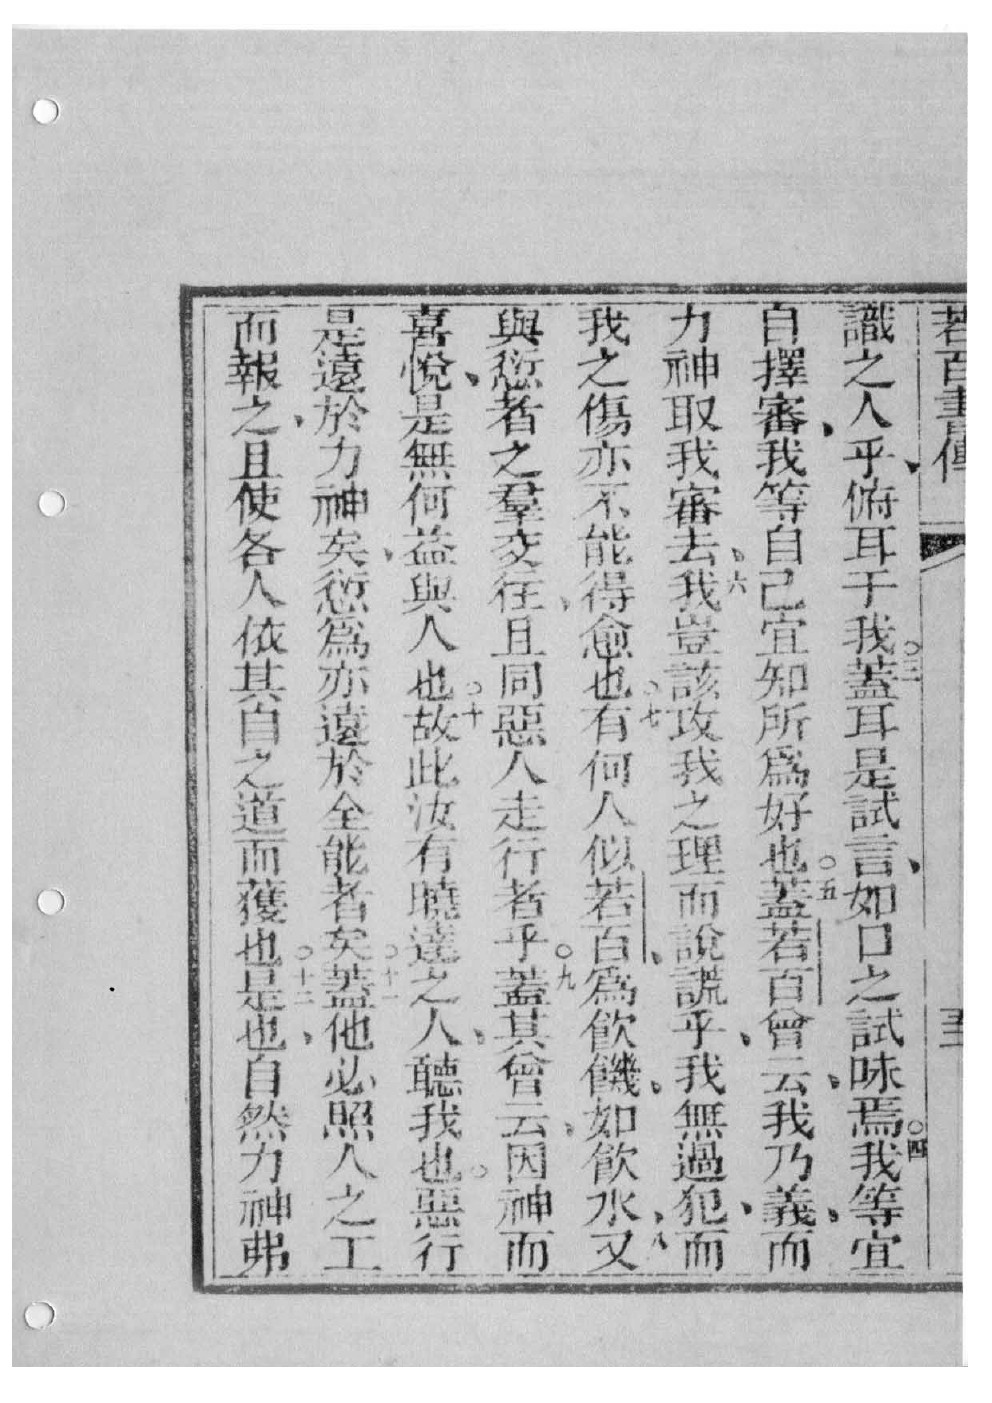 若百書傳 五
識之人乎、俯耳于我○三蓋耳是試言、如口之試味焉○四我等宜
自擇審、我等自己宜知所爲好也○五蓋若百曾云、我乃義、而
力神取我審去、○六我豈該攻我之理而說謊乎、我無過犯、而
我之傷亦不能得愈也○七有何人似若百、爲飲譏、如飲水、○八又
與愆者之羣交往、且同惡人走行者乎○九蓋其曾云、因神而
喜悅、是無何益與人也○十故此汝有曉達之人、聽我也○惡行
是遠於力神矣、愆爲亦遠於全能者矣○十一蓋他必照人之工
而報之、且使各人依其自之道而獲也○十二是也、自然力神弗